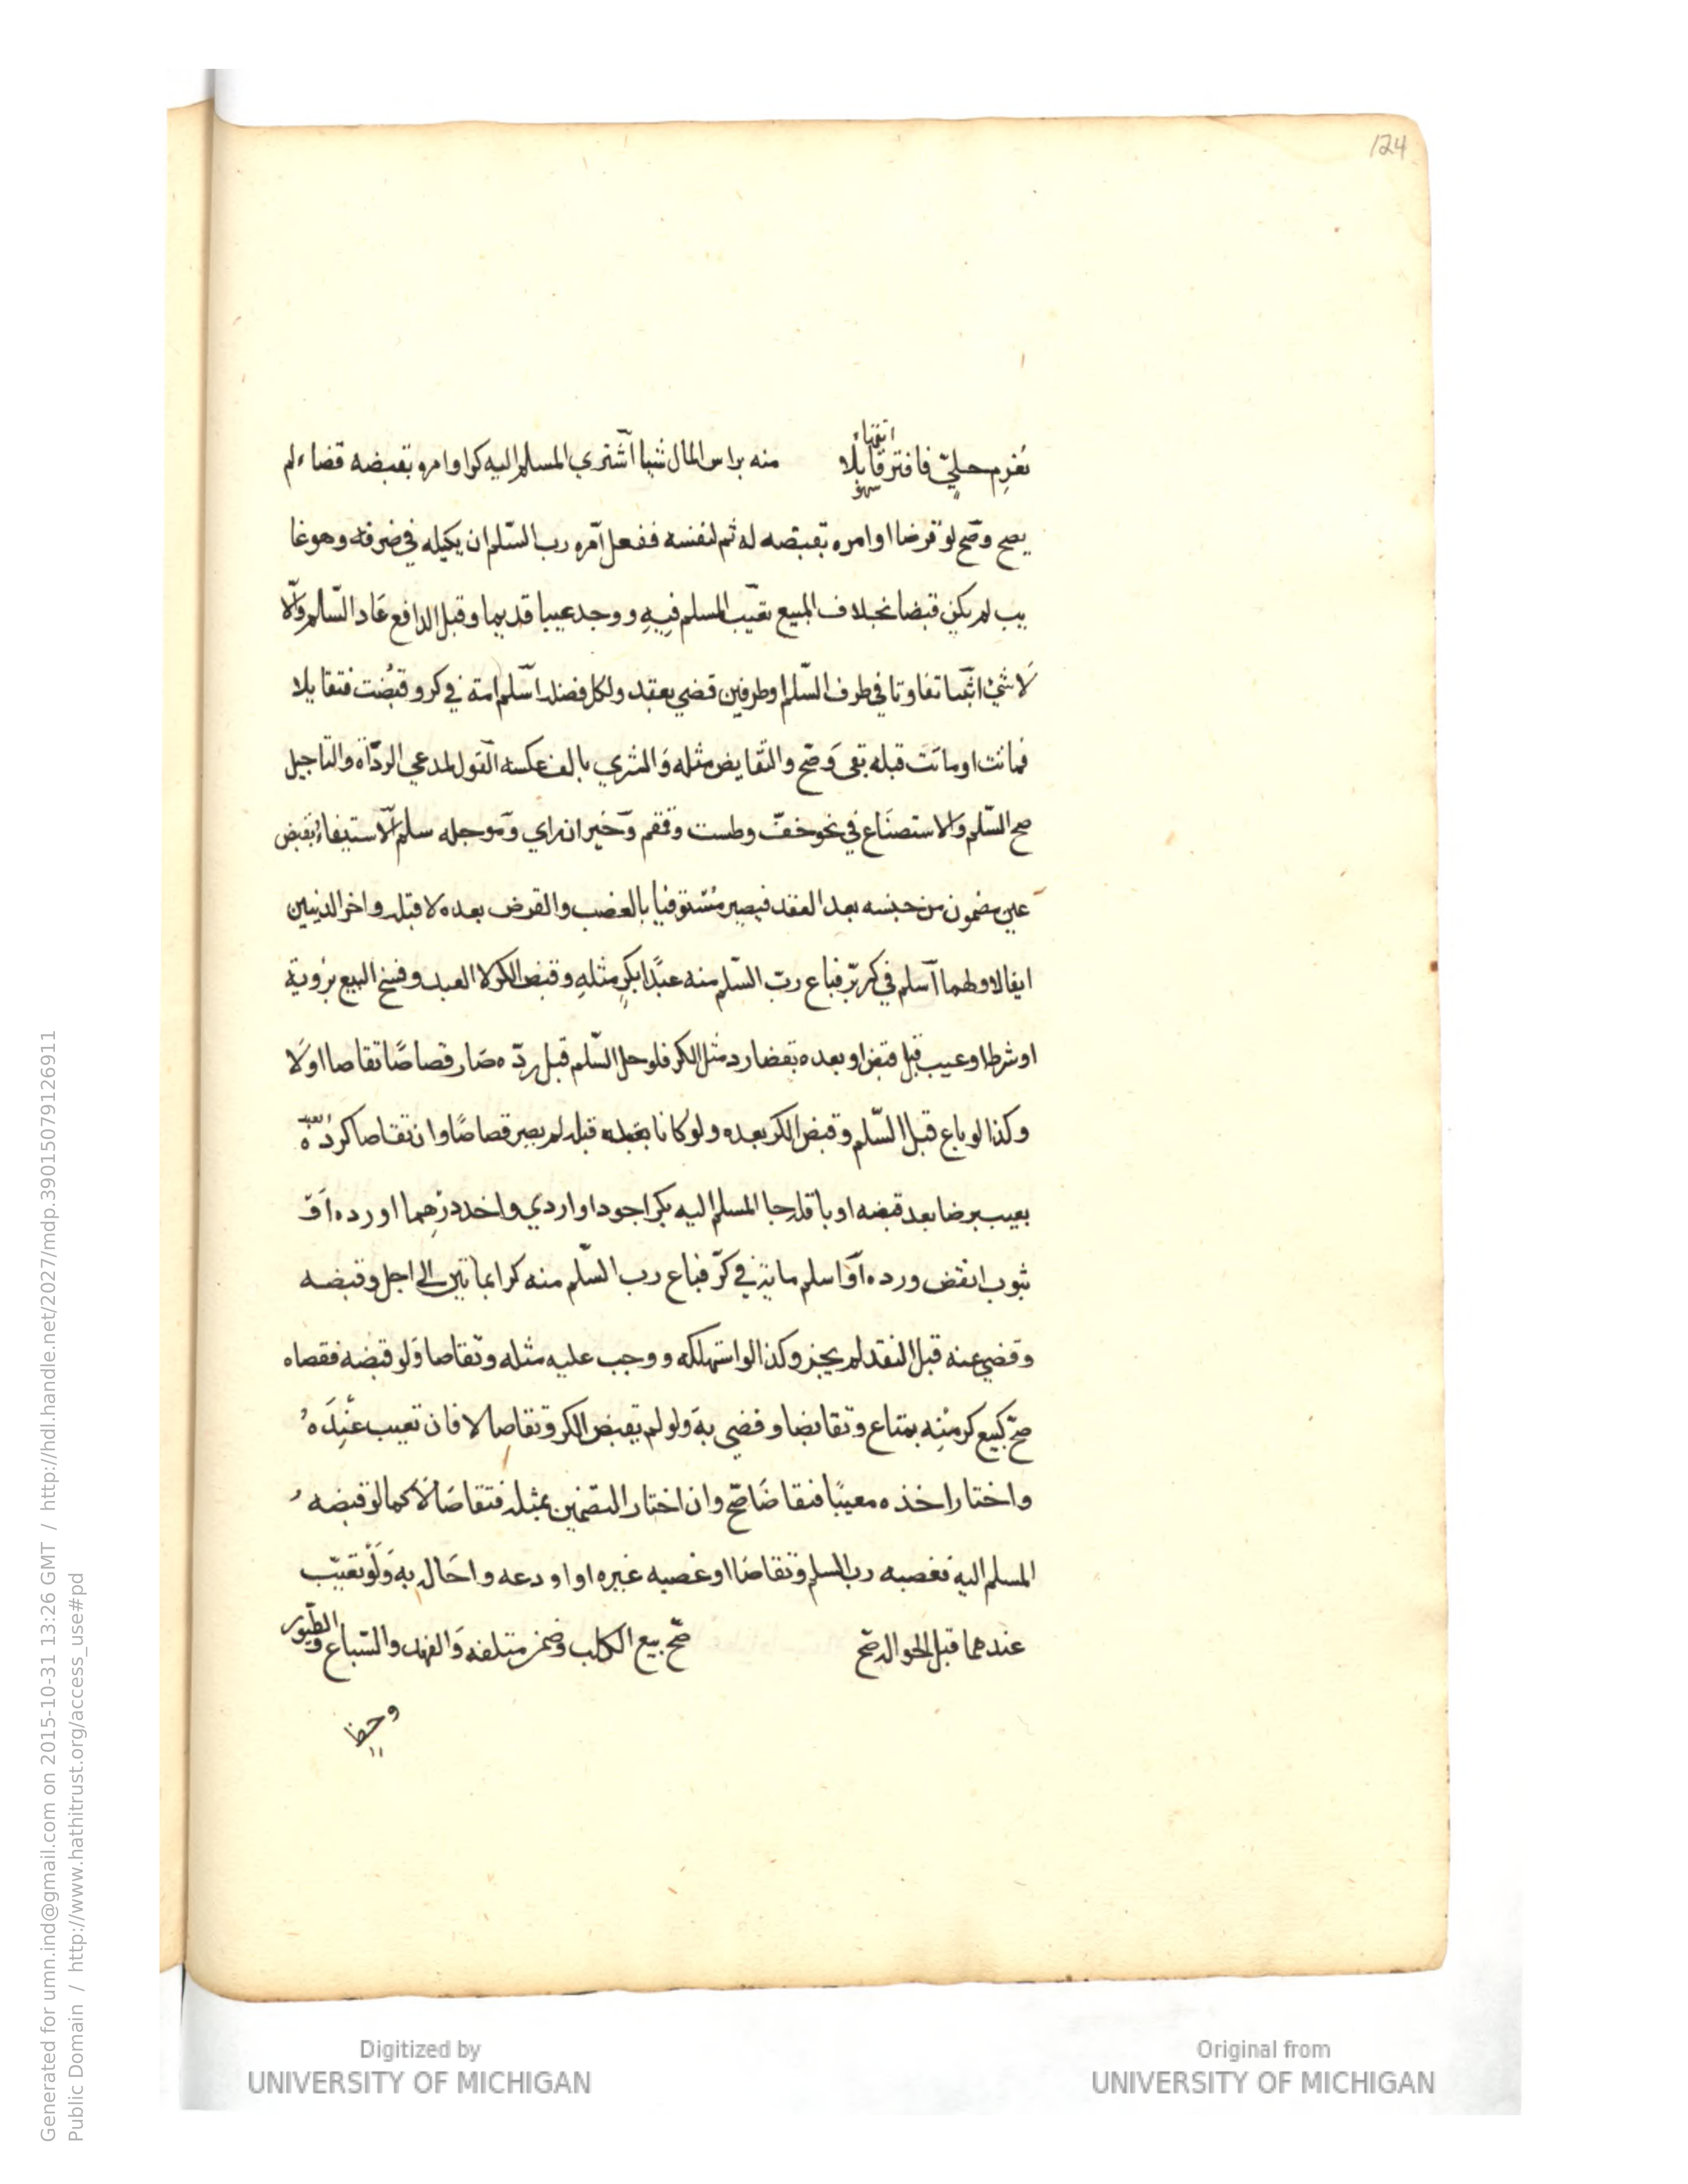 124
انتهاء
نغرم حليّ فافتر قابلا منه براس المال شيا اشتري المسلم اليه كرا وامره بقبضه قضاء لم
سهو
يصح وصح لو قرضا او امره بقبضه له ثم لنفسه ففعل امره رب السّلم ان يكيله في ضرفه وهو غا
يب لم يكن قبضا بخلاف المبيع تعيّب المسلم فيه ووجد عيبا قديما وقبل الدافع عاد السّلم والّا
لا شئ اثبتا تفاوتا في طرف السّلم او طرفين قضي بعقد ولكل فضل اسلم امة في كر وقبضت فتقايلا
فماتت او ماتت قبله بقي وصح والتقايض مثله والمشري بالف عكسه القول لمدعي الردّاة والتاجيل
صح السّلم والاستصناع في نحو خفّ وطست وقمقم وخير ان راي ومؤجله سلم الاستيفاء بقبض
عين مضمون من جنسه بعد العقد فيصير مستوفيا بالغصب والقرض بعده لا قبله واخر الدينين
ايفا لاولهما اسلم في كر برّ فباع ربّ السّلم منه عبدًا بكرٍ مثله وقبض الكر لا العبد وفسخ البيع برؤية
او شرط او عيب قبل قبض او بعده بقضا رد مثل الكر فلو حل السّلم قبل ردّه صار قصاصًا تقاصا او لا
وكذا لو باع قبل السّلم وقبض الكر بعده ولو كانا قبله لم يصر قصاصًا وان تقاصا كردّه
بعيب برضا بعد قبضه او باقاله جا المسلم اليه بكر اجود او اردي واخد درهما او رده او
ثوب انقض ورده او اسلم ماية في كرّ فباع رب السّلم منه كرا بماتين الى اجل وقبضه
وقضي عنه قبل النقد لم يجز وكذا لو استهلكه ووجب عليه مثله وتقاصا ولو قبضه فقصاه
صحّ كبيع كر منه بمتاع وتقابضا وقضي به ولو لم يقبض الكر وتقاصا لا فان تعيب عنده
واختار اخذه معيبًا فتقاصا صحّ وان اختار التضمين بمثله فتقاصا لا كما لو قبضه
المسلم اليه فغصبه رب السلم وتقاصا او غصبه غيره او اودعه واحال به ولو تعيّب
عندهما قبل الحواله صحّ صحّ بيع الكلب وضمن متلفه والفهد والسّباع والطّيور
وحظا
Digitized by
UNIVERSITY OF MICHIGAN
Original from
UNIVERSITY OF MICHIGAN
Generated for umn.ind@gmail.com on 2015-10-31 13:26 GMT / http://hdl.handle.net/2027/mdp.39015079126911
Public Domain / http://www.hathitrust.org/access_use#pd